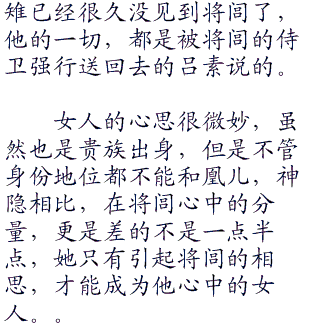 雉已经很久没见到将闾了，
他的一切，都是被将闾的侍
卫强行送回去的吕素说的。
女人的心思很微妙，虽
然也是贵族出身，但是不管
身份地位都不能和凰儿，神
隐相比，在将闾心中的分
量，更是差的不是一点半
点，她只有引起将闾的相
思，才能成为他心中的女
人。。